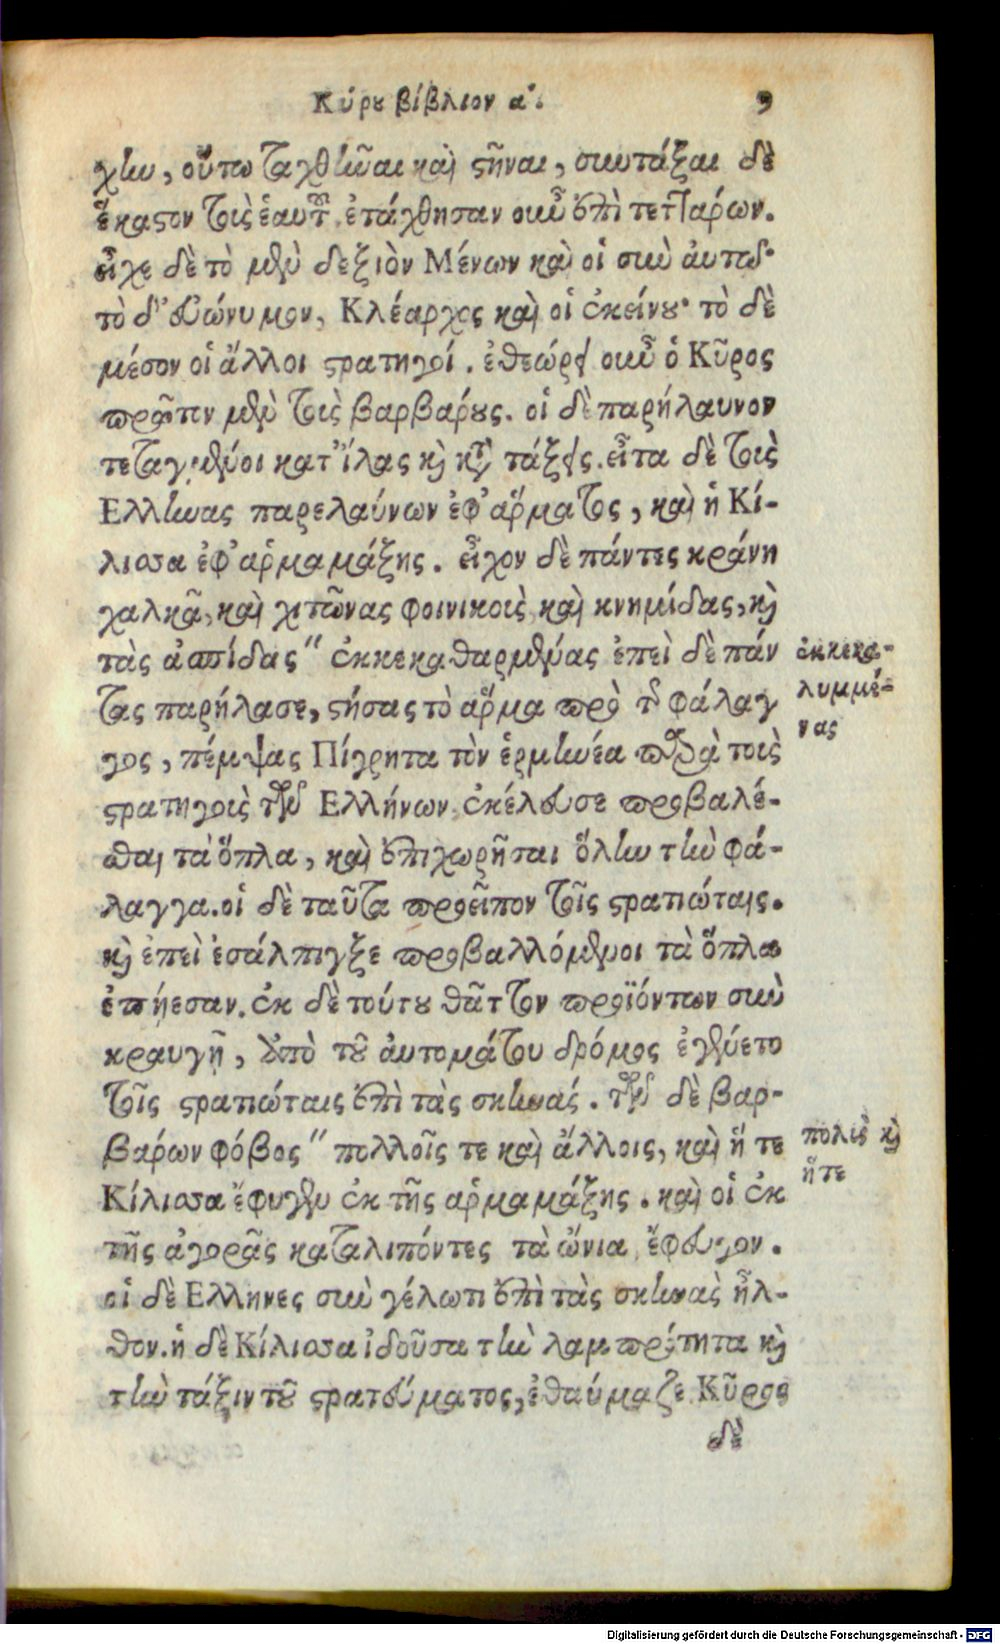 Κύρου βίβλιον α΄. 9
χὴν, οὕτω ταχθῆναι καὶ στῆναι, συντάξαι δὲ
ἕκαστον τοὺς ἑαυτοῦ. ἐτάχθησαν οὖν ἐπὶ τεττάρων.
εἶχε δὲ τὸ μὲν δεξιὸν Μένων καὶ οἱ σὺν αὐτῷ·
τὸ δ' εὐώνυμον, Κλέαρχος καὶ οἱ ἐκείνου· τὸ δὲ
μέσον οἱ ἄλλοι στρατηγοί. ἐθεώρει οὖν ὁ Κῦρος
πρῶτον μὲν τοὺς βαρβάρους. οἱ δὲ παρήλαυνον
τεταγμένοι κατ' ἴλας καὶ κατὰ τάξεις. εἶτα δὲ τοὺς
Ελληνας παρελαύνων ἐφ' ἅρματος, καὶ ἡ Κί-
λισσα ἐφ' ἁρμαμάξης. εἶχον δὲ πάντες κράνη
χαλκᾶ, καὶ χιτῶνας φοινικοῦς, καὶ κνημίδας, καὶ
τὰς ἀσπίδας " ἐκκεκαθαρμένας ἐπεὶ δὲ πάν
τας παρήλασε, στήσας τὸ ἅρμα πρὸ τῆς φάλαγ
γος, πέμψας Πίγρητα τὸν ἑρμηνέα παρὰ τοὺς
στρατηγοὺς τῶν Ελλήνων ἐκέλευσε προβαλέ-
σθαι τὰ ὅπλα, καὶ ἐπιχωρῆσαι ὅλην τὴν φά-
λαγγα. οἱ δὲ ταῦτα προεῖπον τοῖς στρατιώταις.
καὶ ἐπεὶ ἐσάλπιγξε προβαλλόμενοι τὰ ὅπλα
ἐπῄεσαν. ἐκ δὲ τούτου θᾶττον προϊόντων σὺν
κραυγῇ, ὑπὸ τοῦ αὐτομάτου δρόμος ἐγένετο
τοῖς στρατιώταις ἐπὶ τὰς σκηνάς. τῶν δὲ βαρ-
βάρων φόβος " πολλοῖς τε καὶ ἄλλοις, καὶ ἥ τε
Κίλισσα ἔφυγεν ἐκ τῆς ἁρμαμάξης. καὶ οἱ ἐκ
τῆς ἀγορᾶς καταλιπόντες τὰ ὤνια ἔφευγον.
οἱ δὲ Ελληνες σὺν γέλωτι ἐπὶ τὰς σκηνὰς ἦλ-
θον. ἡ δὲ Κίλισσα ἰδοῦσα τὴν λαμπρότητα καὶ
τὴν τάξιν τοῦ στρατεύματος, ἐθαύμαζε. Κῦρος
δὲ
ἐκκεκα-
λυμμέ-
νας
πολὺς καὶ
ἥτε
Digitalisierung gefördert durch die Deutsche Forschungsgemeinschaft - DFG